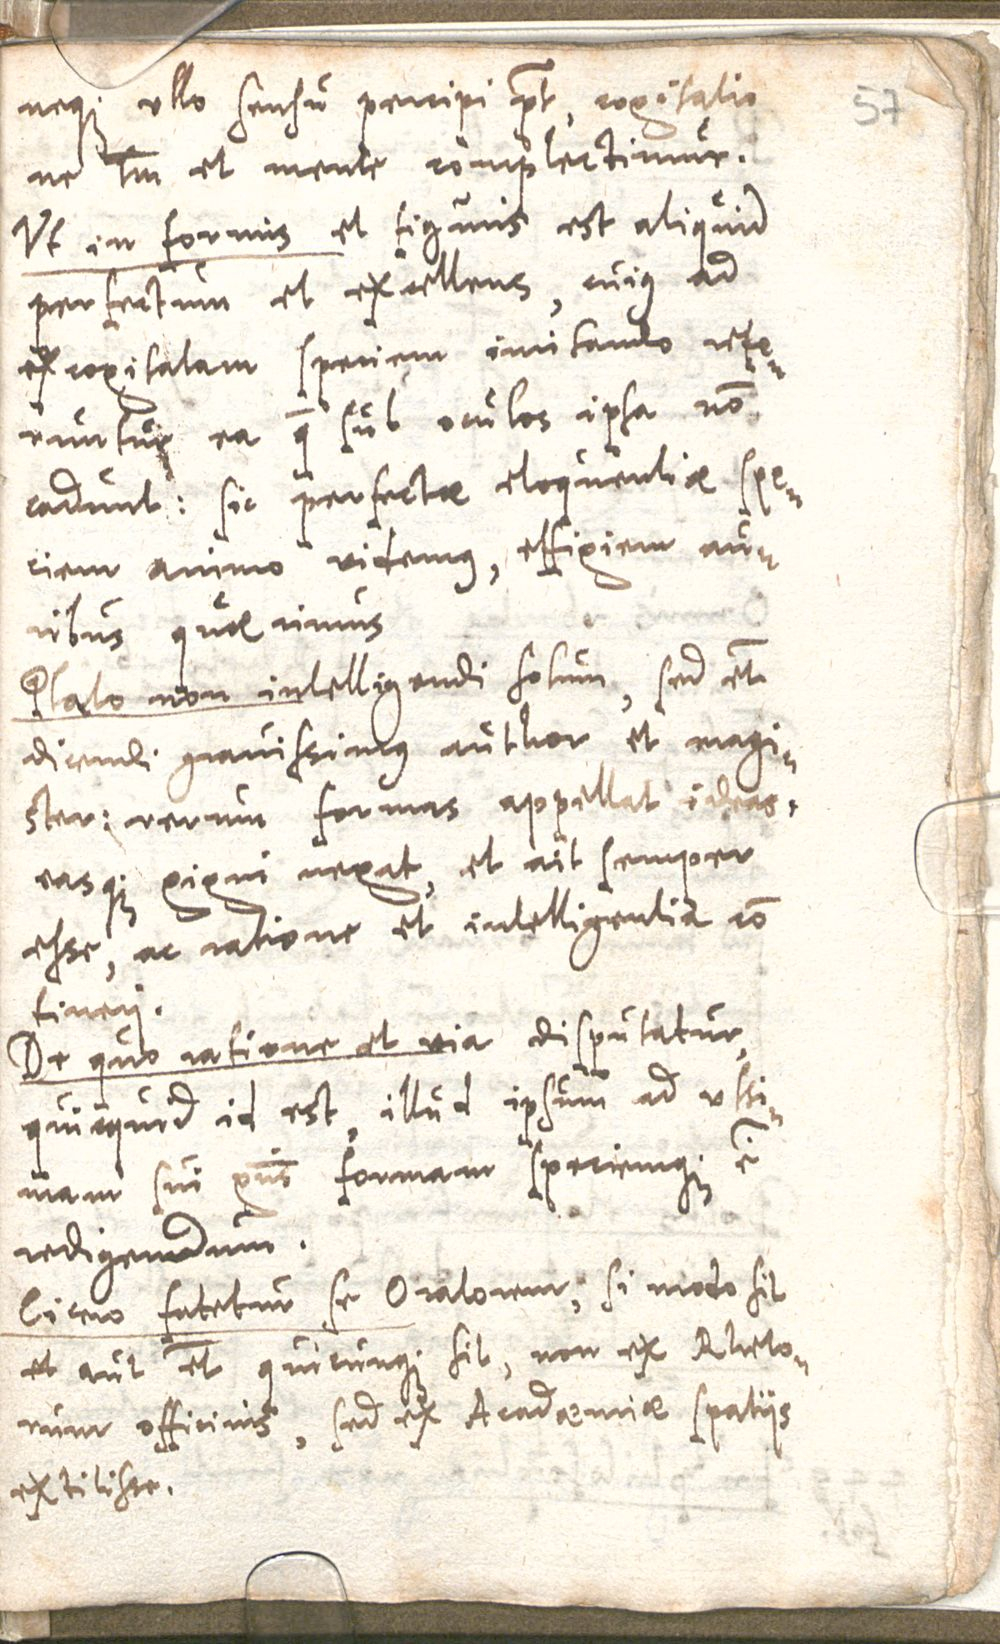 neq; vllo senhu percipi p̄t, cogitatio
ne tm̄ et mente complectimur.
Vt in formis et figuris est aliquid
perfectum et excellens, cuiꝯ ad
excogitatam speciem imitando refe„
runtur ea q̄ sub oculos ipsa nō
cadunt: sic perfectæ eloquentiæ spe„
ciem animo videmꝯ, effigiem au„
ribus quærimus
Plato non intelligendi solum, sed et̄
dicendi grauissimꝯ author et magi„
ster: rerum formas appellat ideas,
easq; gigni negat, et ait semper
esse, ac ratione et intelligentia cō
tineri.
De quo ratione et via disputatur,
quicquid id est, illud ipsum ad vlti„
mam sui gn̄is formam speciemq; ē
redigendum.
Cicero fatetur se Oratorem, si modo sit
et aut et̄ quicunq; sit, non ex Rheto„
rum officinis, sed ex Academiæ spatijs
extitisse.
57